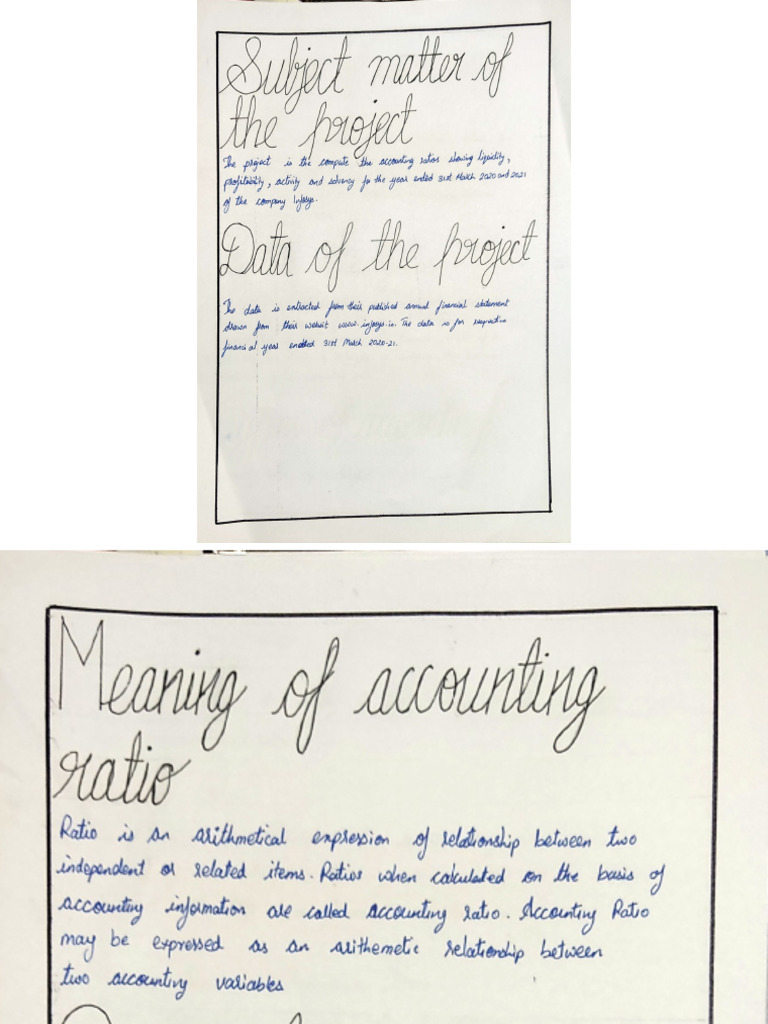 Subject matter of
the project
The project is the compute the accounting ratios showing liquidity,
profitability, activity and solvency fo the year ended 31st March 2020 and 2021
of the company Infosys.
Data of the project
The data is extracted from their published annual financial statement
drawn from their websit www.infosys.in. The data is for respective
financial year endted 31st March 2020-21.
Meaning of accounting
ratio
Ratio is an arithmetical expression of relationship between two
independent or related items. Ratios when calculated on the basis of
accounting information are called accounting ratio. Accounting Ratio
may be expressed as an arithemetic relationship between
two accounting variables